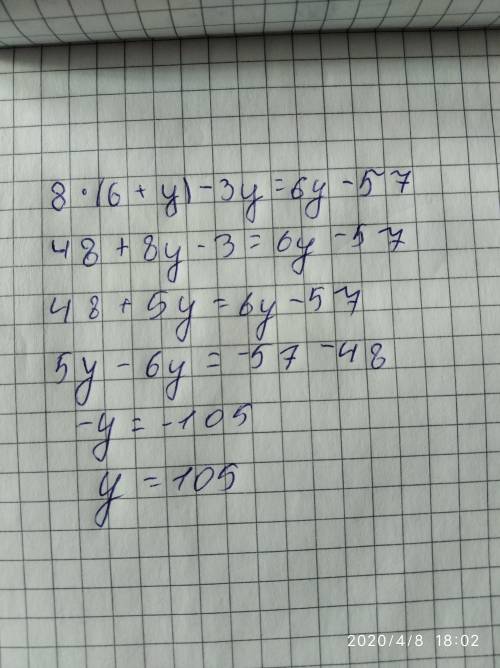 8·(6+y)-3y=6y-57
48+8y-3=6y-57
48+5y=6y-57
5y-6y=-57-48
-y=-105
y=105
2020/4/8 18:02